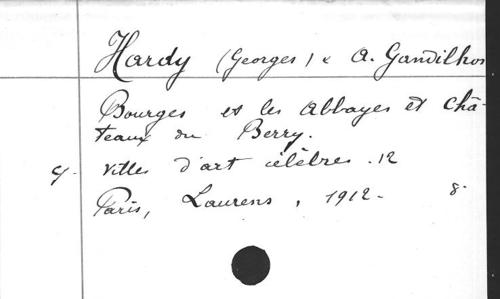 Hardy (Georges) & A. Gandilhon
Bourges et les Abbayes et Châ-
teaux du Berry.
villes d'art célèbres. 12
Paris, Laurens, 1912. 8.